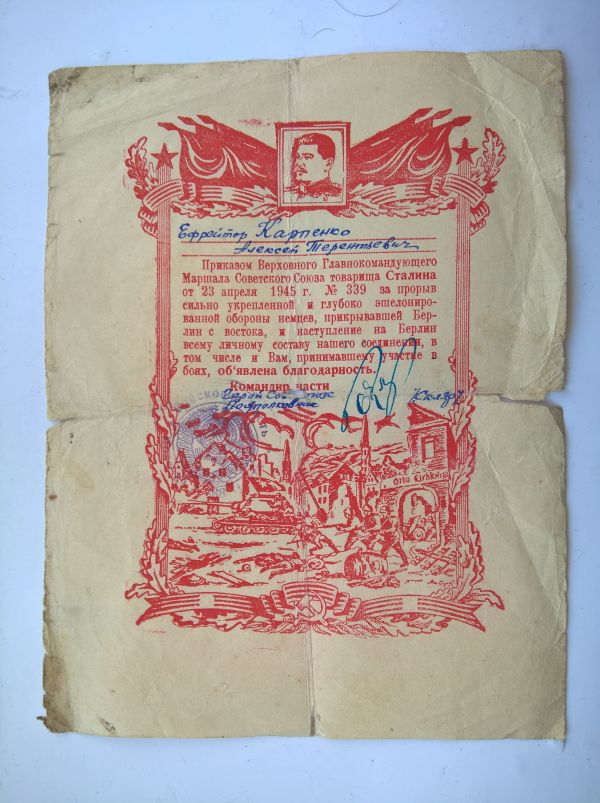 Ефрейтор Карпенко
Алексей Терентьевич
Приказом Верховного Главнокомандующего
Маршала Советского Союза товарища Сталина
от 23 апреля 1945 г. № 339 за прорыв
сильно укрепленной и глубоко эшелониро-
ванной обороны немцев, прикрывавшей Бер-
лин с востока, и наступление на Берлин
всему личному составу нашего соединения, в
том числе и Вам, принимавшему участие в
боях, об'явлена благодарность.
Командир части
Герой Сов. Союза
Подполковник /Скляр/
Otto